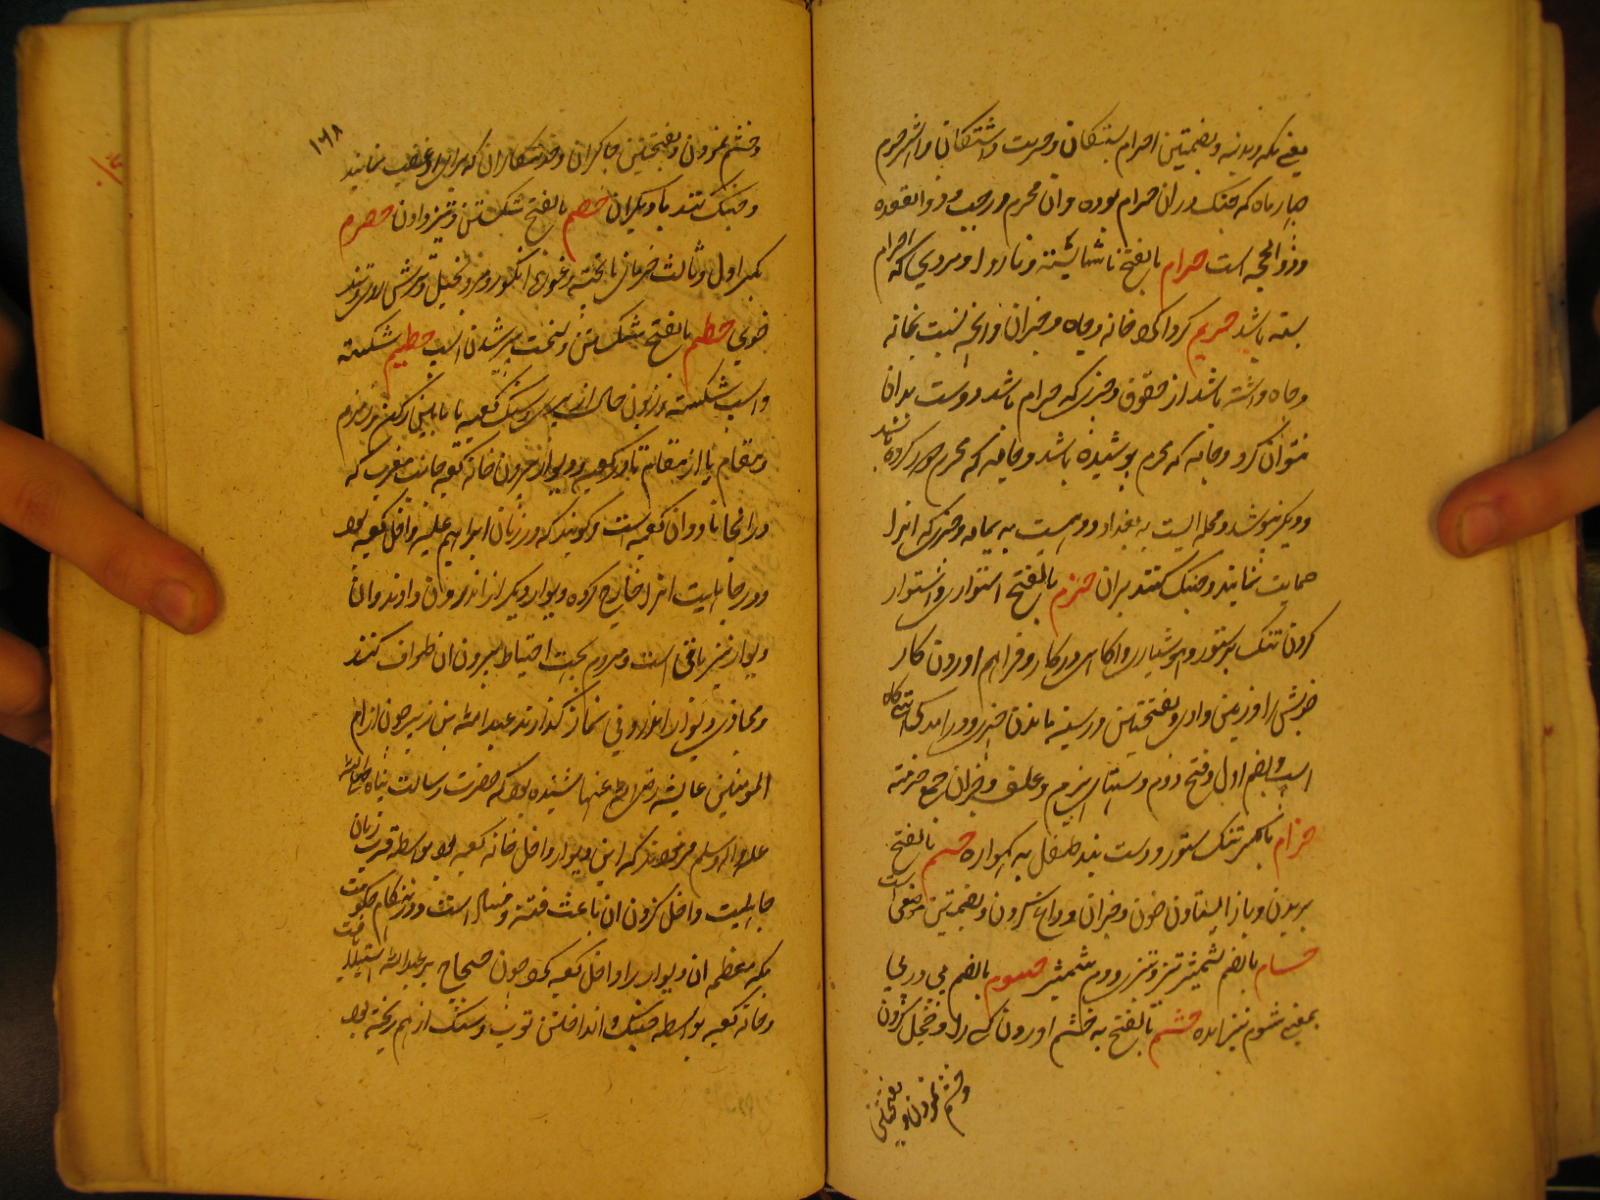 یعنی مکه و مدینه و بضمتین احرام بستکان و حرمت داشتکان و اشهر حرم
چهار ماه که جنک در ان حرام بوده و ان محرم و رجب و ذوالقعده
و ذوالحجه است حرام بالفتح ناشایسته و ناروا و مردی که احرام
بسته باشد حریم کرداکرد خانه و چاه و جز ان و انچه نسبت بخانه
و چاه داشته باشد از حقوق و چیزی که حرام باشد و دست بدان
نتوان کرد و جامه که محرم پوشیده باشد و جامه که محرم دور کرده باشد
و دیکر نپوشد و محله ایست به بغداد و دهیست به یمامه و چیزی که انرا
حمایت نمایند و جنک کنند بران حزم بالفتح استواری و استوار
کردن تنک بر ستور و هوشیاری و اکاهی در کار و فراهم اوردن کار
خویش را و زمین وادی و بفتحتین در سینه ماندن چیزی و در امدکی تنکاه
اسپ و بضم اول و فتح دوم و جز ان جمع حزمه
حزام بالکسر تنک ستور و دست بند طفل به کهواره حسم بالفتح
بریدن و باز ایستادن خون و جز ان و داغ کردن و بضمتین موضعی است
حسام بالضم شمشیر تیز و تیزی دم شمشیر حسوم بالضم پی در پی
بمعنی شوم نیز امده حشم بالفتح به خشم اوردن کسی را و خجل کردن
و خشم نمودن و بفتحتین
۱۶۸
و خشم نمودن و بفتحتین چاکران و خدمتکاران که برای او غضب نمایند
و جنک کنند با دیکران حصم بالفتح شکستن و تیز دادن حصرم
بکسر اول و ثالث خرمای ناپخته و غوره انکور و مرد بخیل و ترش روی و تند
خوی حطم بالفتح شکستن و بفتحتین پیر شدن اسپ حطیم شکسته
و اسپ شکسته و زبون حال از پیری و سنک کعبه یا مابین رکن و زمزم
و مقام یا از مقام تا در کعبه و دیوار بیرون خانه کعبه جانب مغرب که
در انجا ناودان کعبه است و کویند که در زمان ابراهیم علیه داخل کعبه بود
و در جاهلیت انرا خارج کرده دیوار دیکر از اندرون دادند و ان
دیوار نیز باقی است و مردم بجهت احتیاط بیرون ان طواف کنند
و محاذی دیوار اندرونی نماز کذارند عبد الله بن زبیر چون از ام
المومنین عایشه رضی الله عنها شنیده بود که حضرت رسالت پناه صلی الله
علیه واله وسلم میفرمودند که این دیوار داخل خانه کعبه بود بواسطه قرب زمان
جاهلیت داخل کردن ان باعث فتنه و فساد است و در هنکام حکومت
مکه معظمه ان دیوار را داخل کعبه کرد چون حجاج بر عبد الله استیلا یافت
و خانه کعبه بواسطه جنک و انداختن توپ و سنک از هم ریخته بود